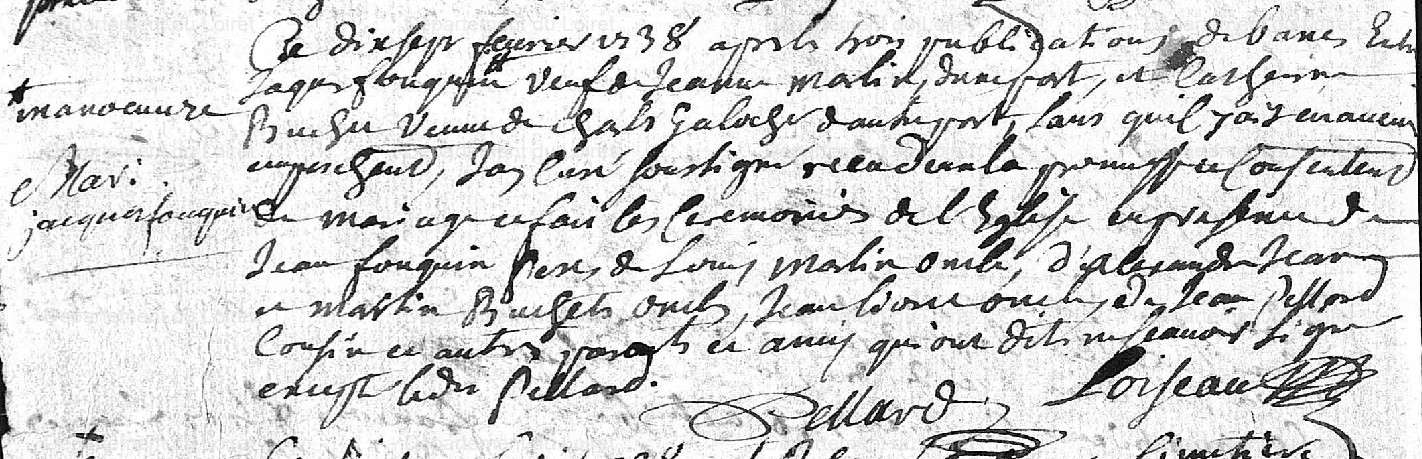 Ce dixsept feuvrier 1738 apres trois publications de bancs Entre
manoeuvre
Jaques fouquin veuf de Jeanne Martin, dune part, et Catherine
Buchet veuve de Charls Galoché d'autre part, sans quil y ait eu aucun
empeschent, Jay Curé soussigné receu la promesse et Consentent
Mari.
jacques fouquin
de mariage et fait les Ceremonies de l'Eglise en presence de
Jean fouquin Pere, de Louis Martin oncle, d'Alexandre Jean
et Martin Buchets oncles, Jean oncle, de Jean Pellard
Cousin et autres parents et amis qui ont dits ne scavoir signer
except ledit Pellard.
Pellard Loiseau